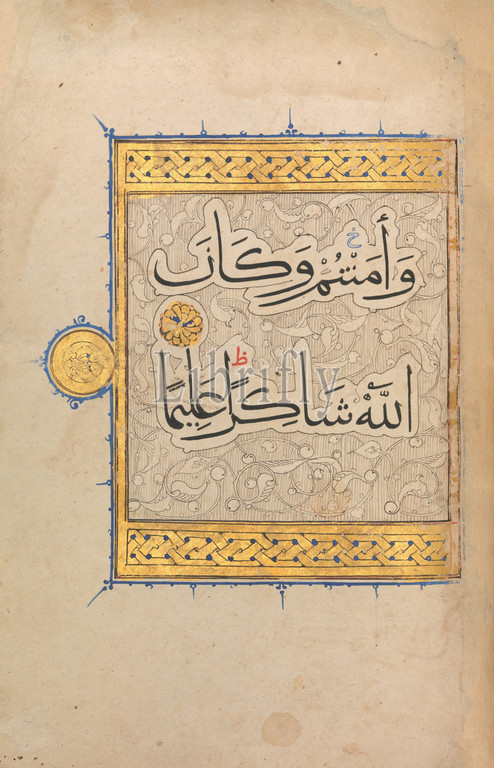 وَأَمَنْتُمْ وَكَانَ
خ
اللَّهُ شَاكِرًا عَلِيمًا
ظ
Librifly